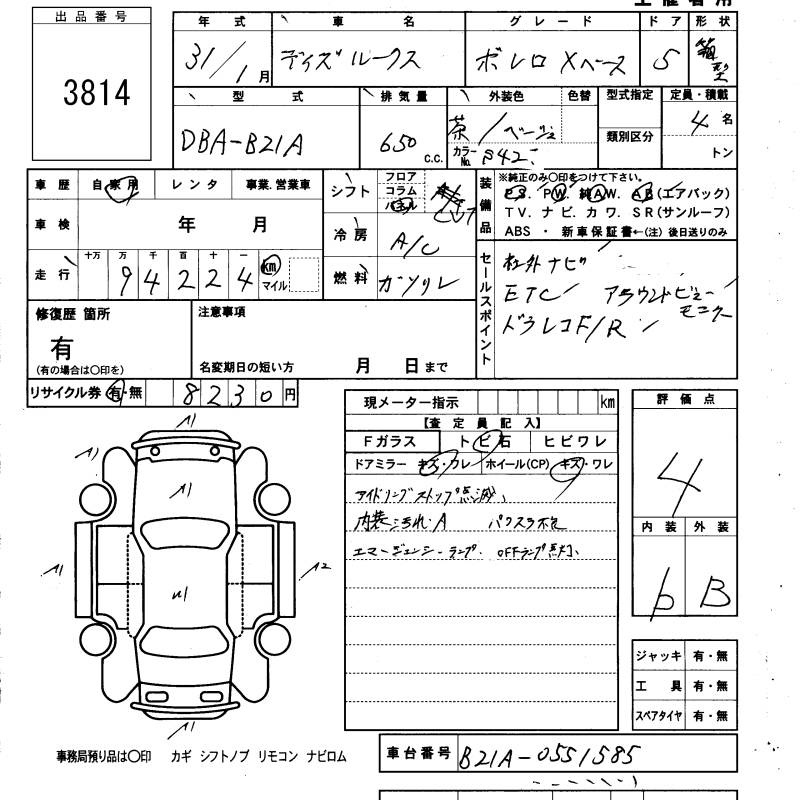 出品番号
3814
年式 車名 グレード ドア 形状
31/1月 デイズルークス ボレロ Xベース 5 箱型
型式 排気量 外装色 色替 型式指定 定員・積載
DBA-B21A 650 C.C. 茶/ベージュ 類別区分 4名
カラーNo. トン
車歴 自家用 レンタ 事業.営業車
シフト フロア コラム パネル CVT
車検 年 月
冷房 A/C
走行 十万 万 千 百 十 一
94224 km マイル
燃料 ガソリン
装備品 ※純正のみ〇印をつけて下さい。
P.S. P.W. 純A.W. A.B(エアバック)
T V. ナ ビ. カ ワ. S R (サンルーフ)
ABS ・ 新車保証書←(注) 後日送りのみ
セールスポイント
社外ナビ
ETC アラウンドビューモニター
ドラレコF/R
修復歴 箇所
有
(有の場合は〇印を)
注意事項
名変期日の短い方 月 日まで
リサイクル券 有・無 8230円
現メーター指示 km
【査定員記入】
Fガラス トビ石 ヒビワレ
ドアミラー キズ・ワレ ホイール(CP) キズ・ワレ
アイドリングストップ点滅、
内装汚れ.A
エマージェンシーランプ. OFFランプ点灯、
評価点
4
内装 外装
b B
A1
A1
A1
A1
A2
A1
ジャッキ 有・無
工具 有・無
スペアタイヤ 有・無
事務局預り品は〇印 カギ シフトノブ リモコン ナビロム
車台番号 B21A-0551585